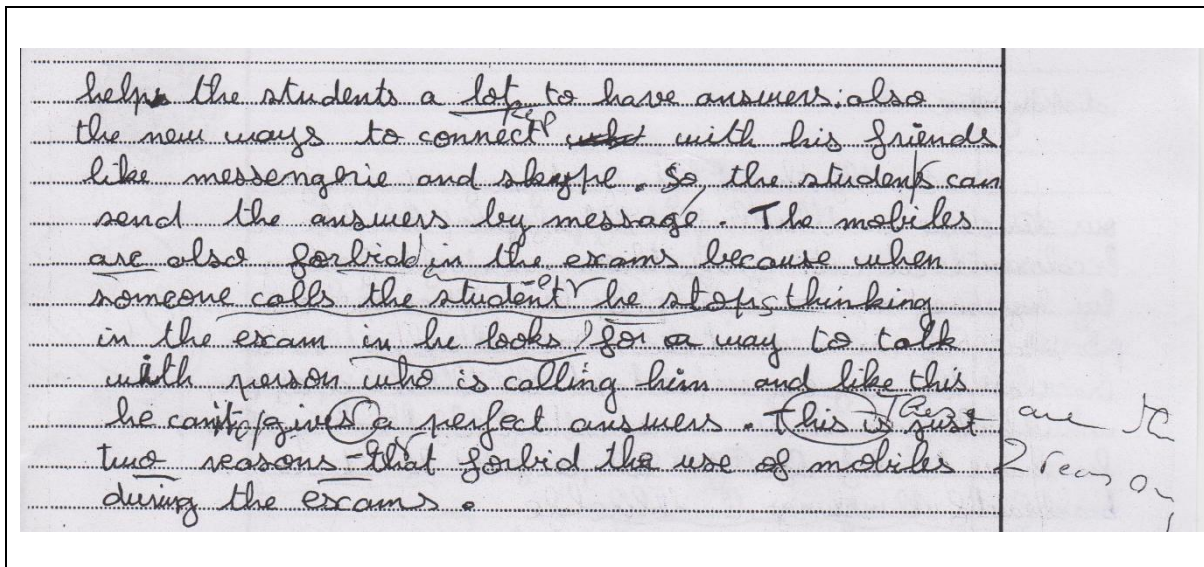 helps the students a lot to have answers. also
the new ways to connect with his friends
like messengrie and skype. So the students can
send the answers by message. The mobiles
are also forbid in the exams because when
someone calls the student he stops thinking
in the exam in he looks for a way to talk
with person who is calling him and like this
he can't gives a perfect answers. This is just
two reasons that forbid the use of mobiles
during the exams.
These are the
2 reason